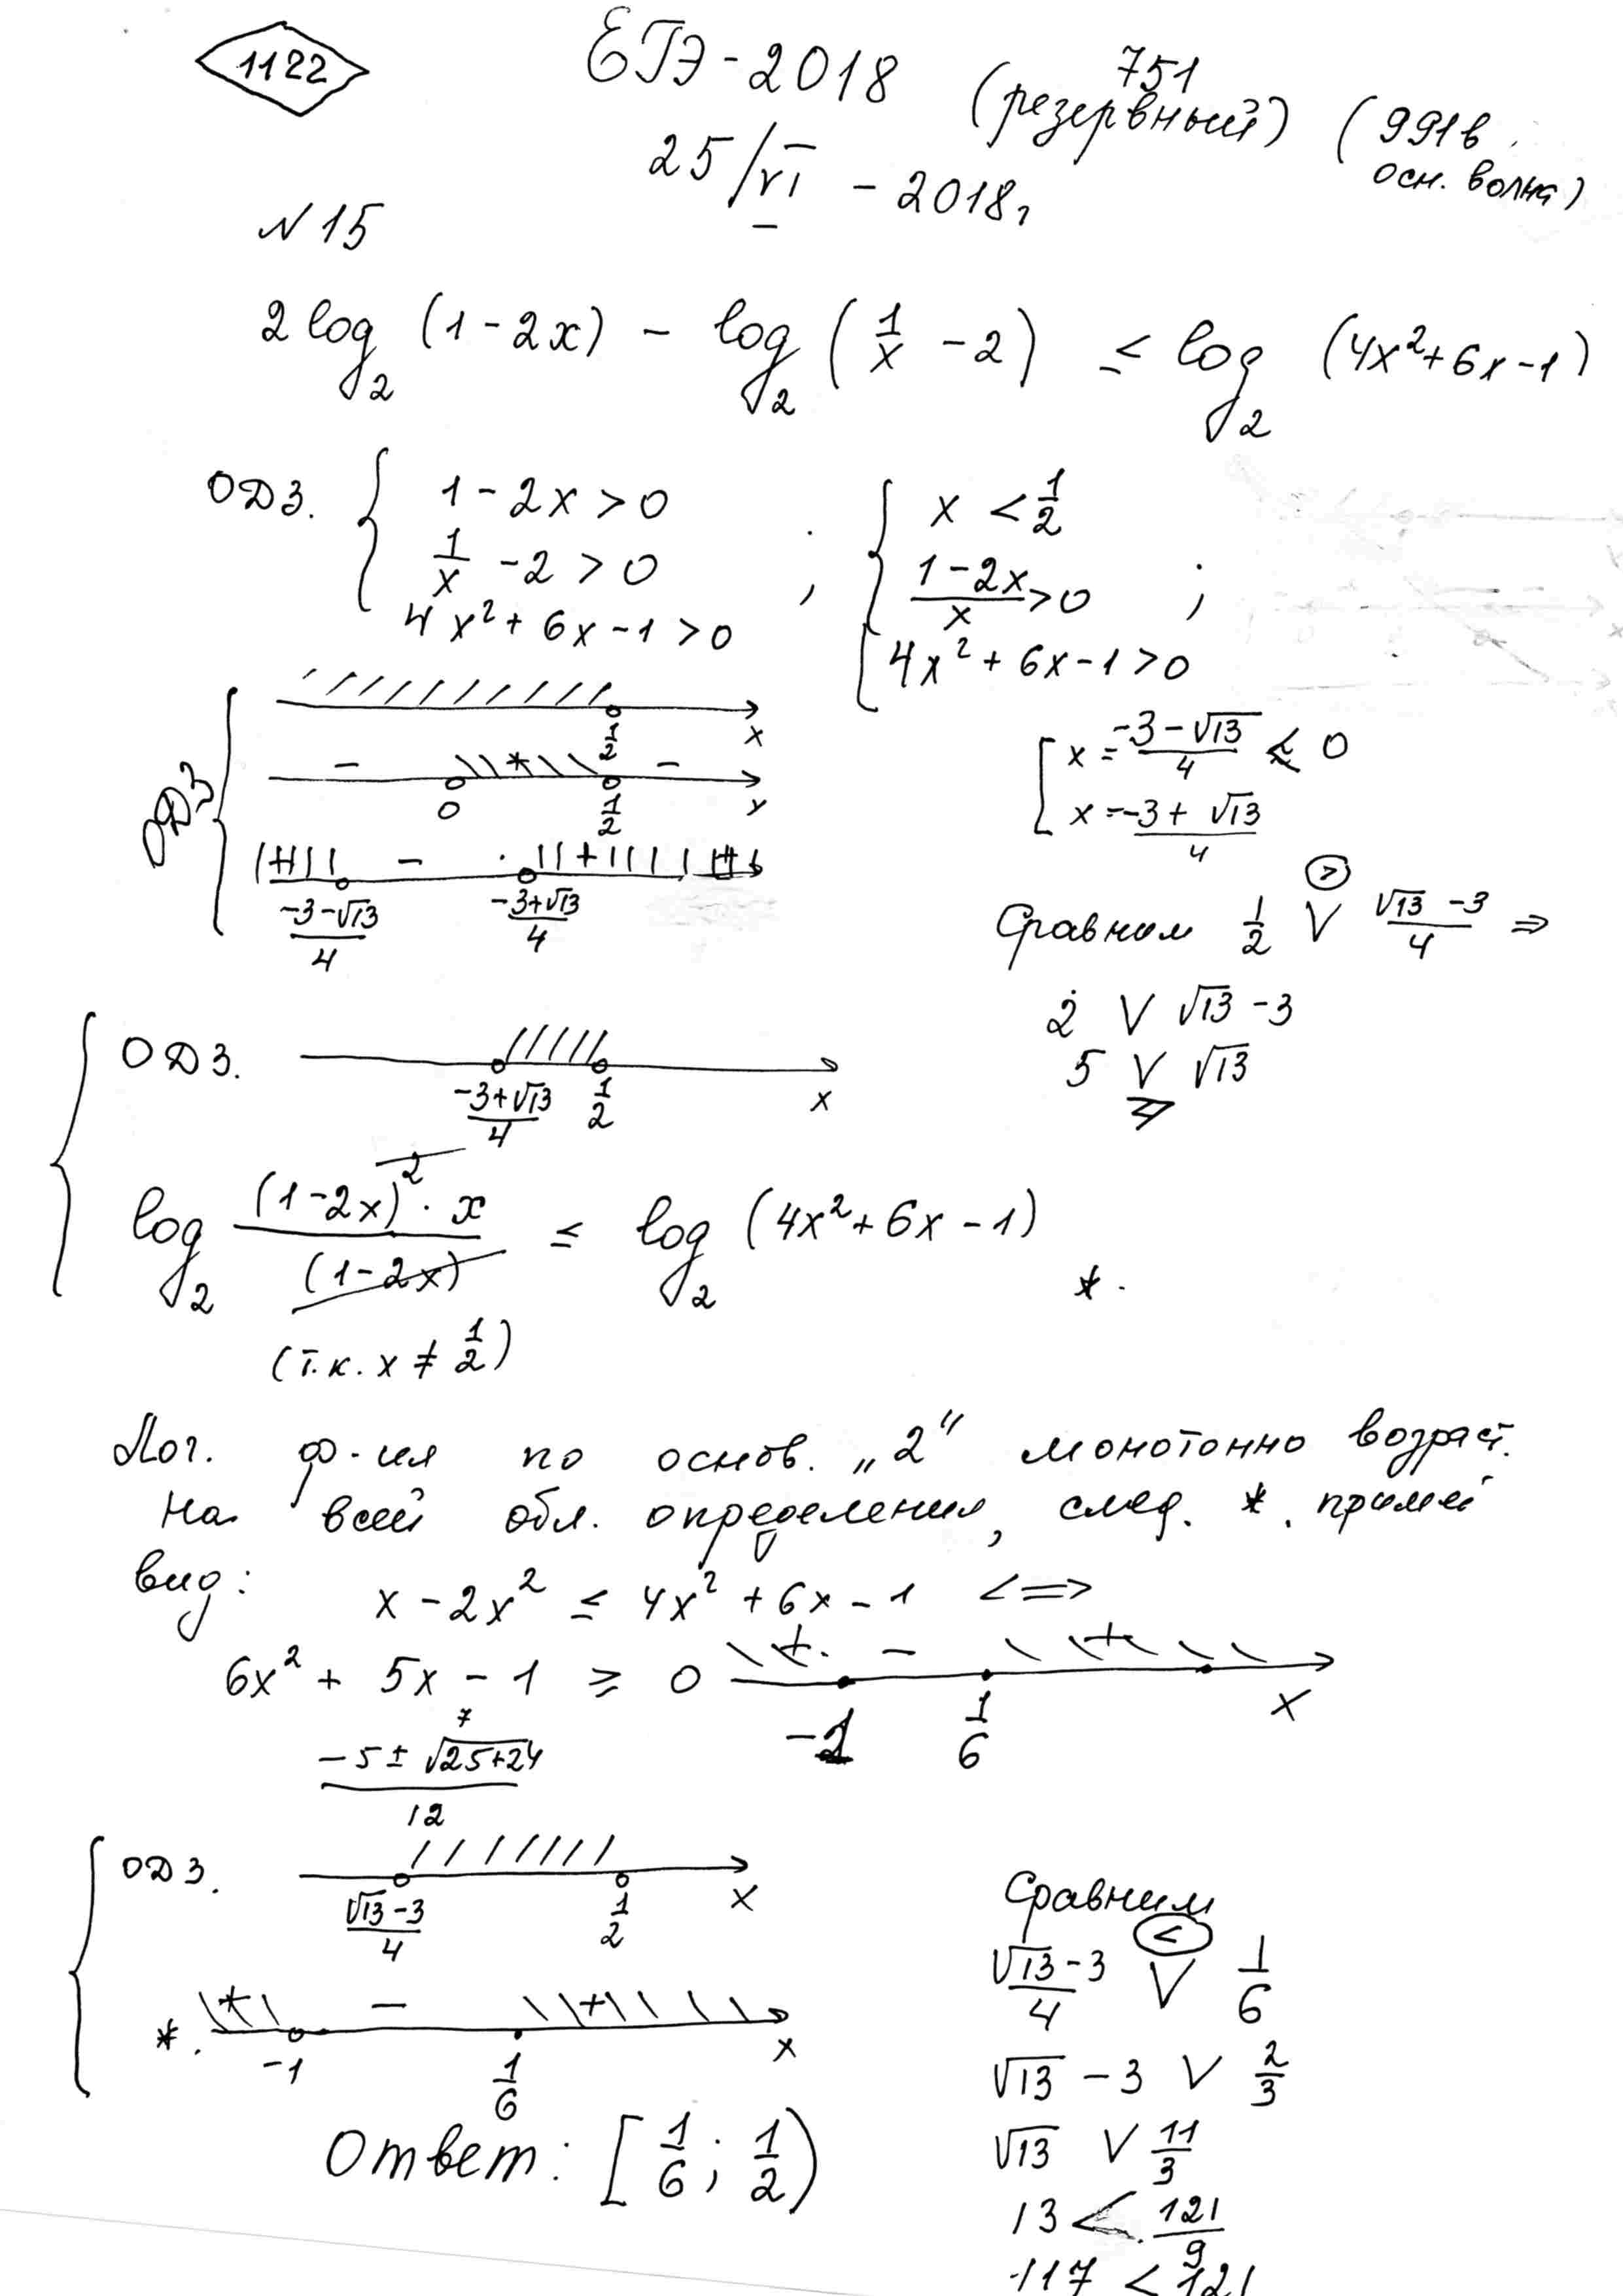 1122
ЕГЭ - 2018 (резервный) (991 в осн. волна)
751
25/VI - 2018г
N 15
2 log₂ (1 - 2x) - log₂ (1/x - 2) ≤ log₂ (4x² + 6x - 1)
ОДЗ. { 1 - 2x > 0 ; { x < 1/2
1/x - 2 > 0 ; (1 - 2x)/x > 0 ;
4x² + 6x - 1 > 0 4x² + 6x - 1 > 0
ОДЗ
1/2 x
- * -
0 1/2 x
+ - +
(-3-√13)/4 (-3+√13)/4
[ x = (-3 - √13)/4 < 0
x = (-3 + √13)/4
Сравним 1/2 V (√13 - 3)/4 ⇒
>
2 V √13 - 3
5 V √13
>
ОДЗ.
(-3+√13)/4 1/2 x
log₂ ((1 - 2x)² · x)/(1 - 2x) ≤ log₂ (4x² + 6x - 1) *.
(т.к. x ≠ 1/2)
Лог. ф-ия по основ. „2" монотонно возраст.
на всей обл. определения, след. *. примет
вид: x - 2x² ≤ 4x² + 6x - 1 <=>
6x² + 5x - 1 ≥ 0
+ - +
-1 1/6 x
7
(-5 ± √25+24)/12
ОДЗ.
(√13 - 3)/4 1/2 x
*. + - +
-1 1/6 x
Ответ: [1/6; 1/2)
Сравним
<
(√13 - 3)/4 V 1/6
√13 - 3 V 2/3
√13 V 11/3
13 < 121/9
117 < 121